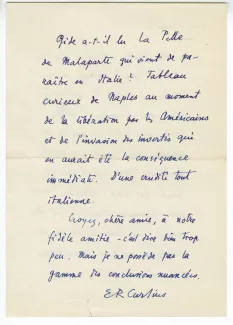 Gide a-t-il lu La Pelle
de Malaparte qui vient de pa-
raître en Italie ? Tableau
curieux de Naples au moment
de la libération par les Américains
et de l'invasion des invertis qui
en aurait été la conséquence
immédiate. D'une crudité tout
italienne.
Croyez, chère amie, à notre
fidèle amitié - c'est dire bien trop
peu. Mais je ne possède pas la
gamme des conclusions nuancées.
E R Curtius